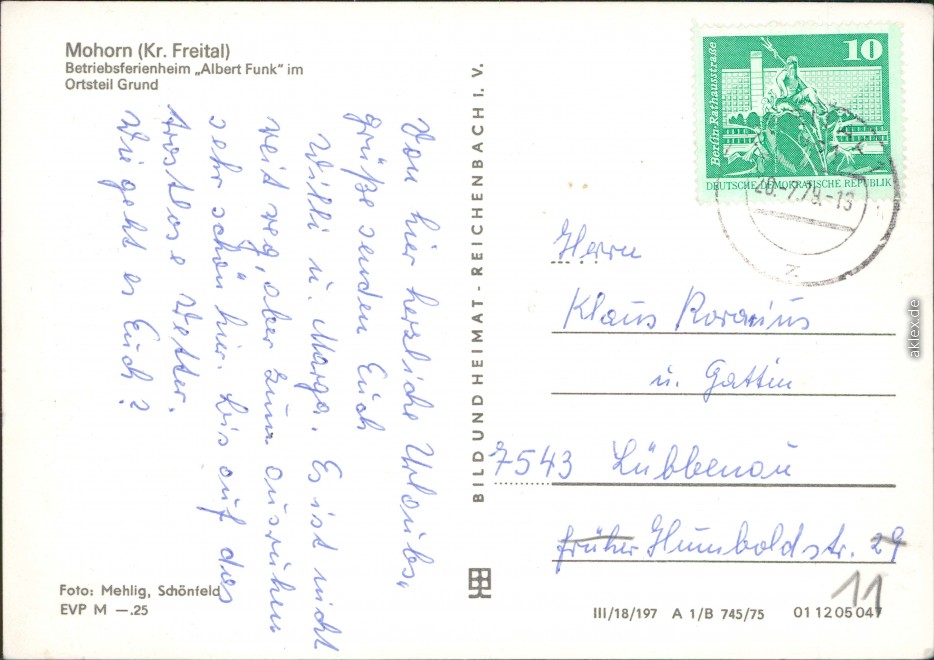 Mohorn (Kr. Freital)
Betriebsferienheim „Albert Funk“ im
Ortsteil Grund
Von hier herzliche Urlaubs-
grüße senden Euch
Willi u. Marga. Es ist nicht
weit weg, aber zum ausruhen
sehr schön hier. Bis auf das
trostlose Wetter.
Wie geht es Euch?
Foto: Mehlig, Schönfeld
EVP M —.25
BILD UND HEIMAT - REICHENBACH I. V.
10
Berlin-Rathausstraße
DEUTSCHE DEMOKRATISCHE REPUBLIK
20.-7.78.-13
Herrn
Klaus
u. Gattin
7543 Lübbenau
früher Humboldstr. 29
11
III/18/197 A 1/B 745/75 01 12 05 047
aklex.de